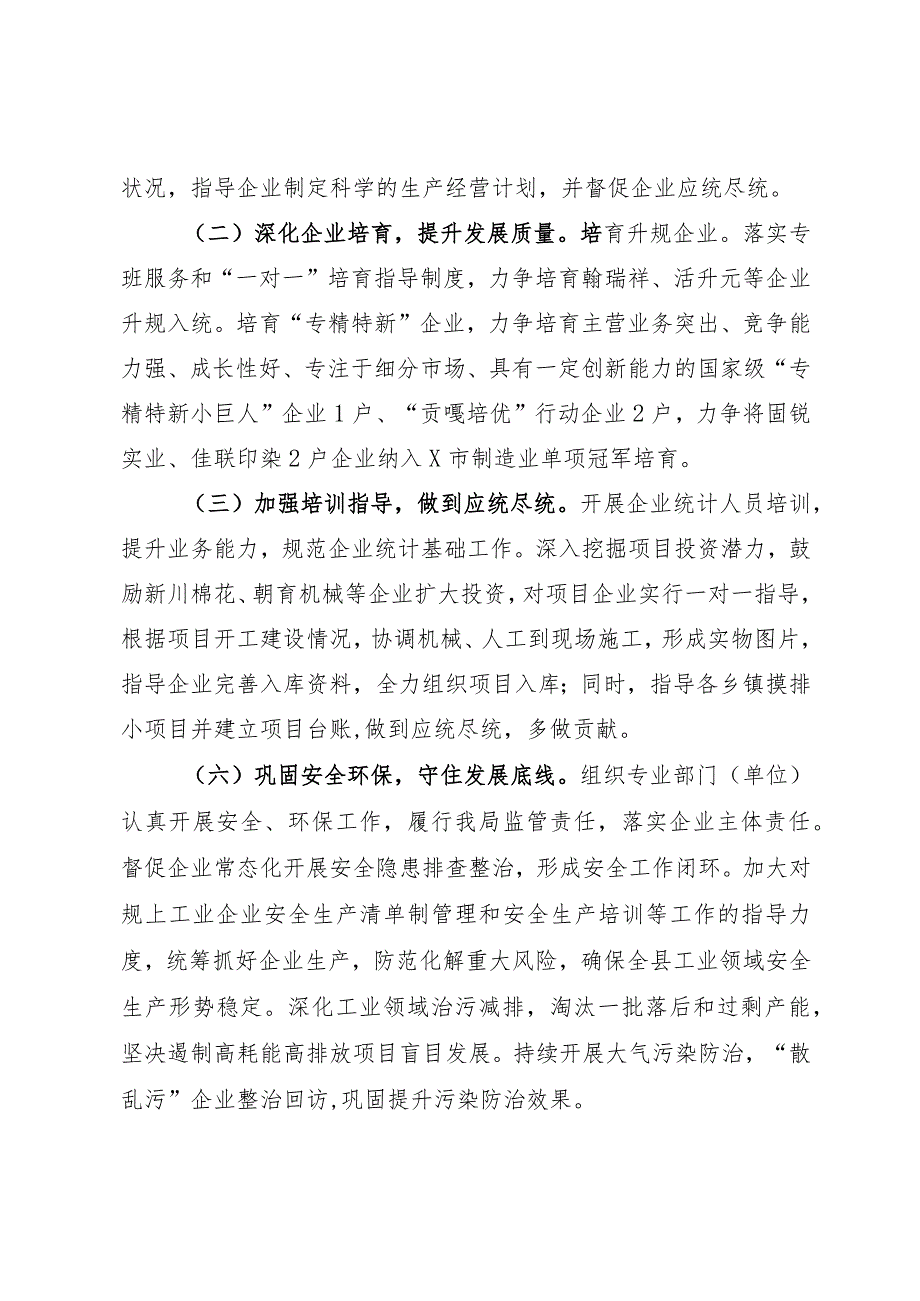 状况，指导企业制定科学的生产经营计划，并督促企业应统尽统。
（二）深化企业培育，提升发展质量。培育升规企业。落实专
班服务和“一对一”培育指导制度，力争培育翰瑞祥、活升元等企业
升规入统。培育“专精特新”企业，力争培育主营业务突出、竞争能
力强、成长性好、专注于细分市场、具有一定创新能力的国家级“专
精特新小巨人”企业 1 户、“贡嘎培优”行动企业 2 户，力争将固锐
实业、佳联印染 2 户企业纳入 X 市制造业单项冠军培育。
（三）加强培训指导，做到应统尽统。开展企业统计人员培训，
提升业务能力，规范企业统计基础工作。深入挖掘项目投资潜力，鼓
励新川棉花、朝育机械等企业扩大投资，对项目企业实行一对一指导，
根据项目开工建设情况，协调机械、人工到现场施工，形成实物图片，
指导企业完善入库资料，全力组织项目入库；同时，指导各乡镇摸排
小项目并建立项目台账,做到应统尽统，多做贡献。
（六）巩固安全环保，守住发展底线。组织专业部门（单位）
认真开展安全、环保工作，履行我局监管责任，落实企业主体责任。
督促企业常态化开展安全隐患排查整治，形成安全工作闭环。加大对
规上工业企业安全生产清单制管理和安全生产培训等工作的指导力
度，统筹抓好企业生产，防范化解重大风险，确保全县工业领域安全
生产形势稳定。深化工业领域治污减排，淘汰一批落后和过剩产能，
坚决遏制高耗能高排放项目盲目发展。持续开展大气污染防治，“散
乱污”企业整治回访,巩固提升污染防治效果。